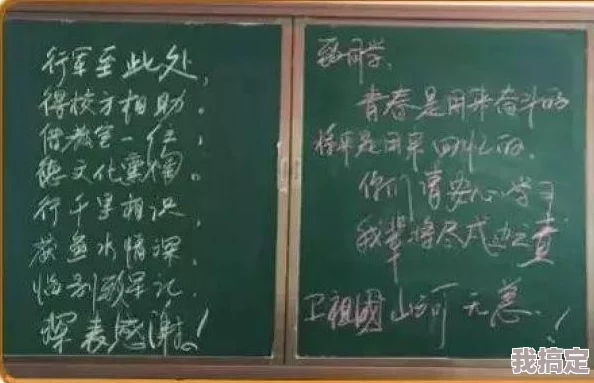 行军至此处,
得校方相助。
借教室一住,
文化熏陶。
行千里相识,
鱼水情深,
临别敬军礼,
深表感谢!
致同学:
青春是用来奋斗的
将来是用来回忆的.
你们请安心学习
我辈将尽之责
卫祖國山河无恙!
我搞定